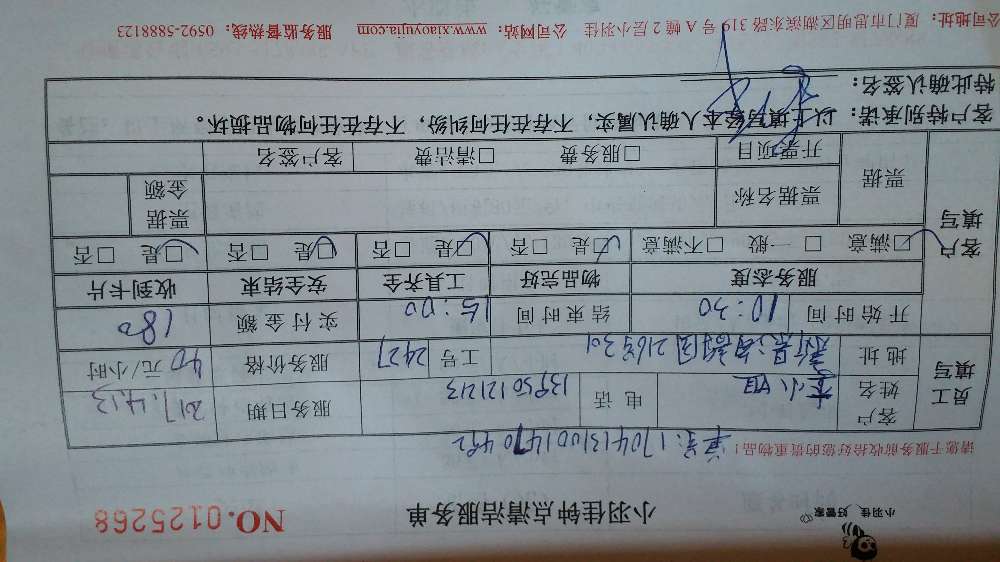 小羽佳 好管家
小羽佳钟点清洁服务单
NO.0125268
请您于服务前收拾好您的贵重物品!
单号:1704131001470492
员工填写
客户姓名 李小姐 电话 13950121213 服务日期 2017.4.13
地址 216号301 工号 2427 服务价格 40元/小时
开始时间 10:30 结束时间 15:00 实付金额 180
客户填写
服务态度 物品完好 工具齐全 安全结束 收到卡片
☑满意 □一般 □不满意 ☑是 □否 ☑是 □否 ☑是 □否 ☑是 □否
票据 票据名称 票据金额
开票项目 □服务费 □清洁费 客户签名
客户特别承诺:以上填写经本人确认属实,不存在任何纠纷,不存在任何物品损坏。
特此确认签名:
公司地址:厦门市思明区湖滨东路319号A幢2层小羽佳 公司网站:www.xiaoyujia.com 服务监督热线:0592-5888123